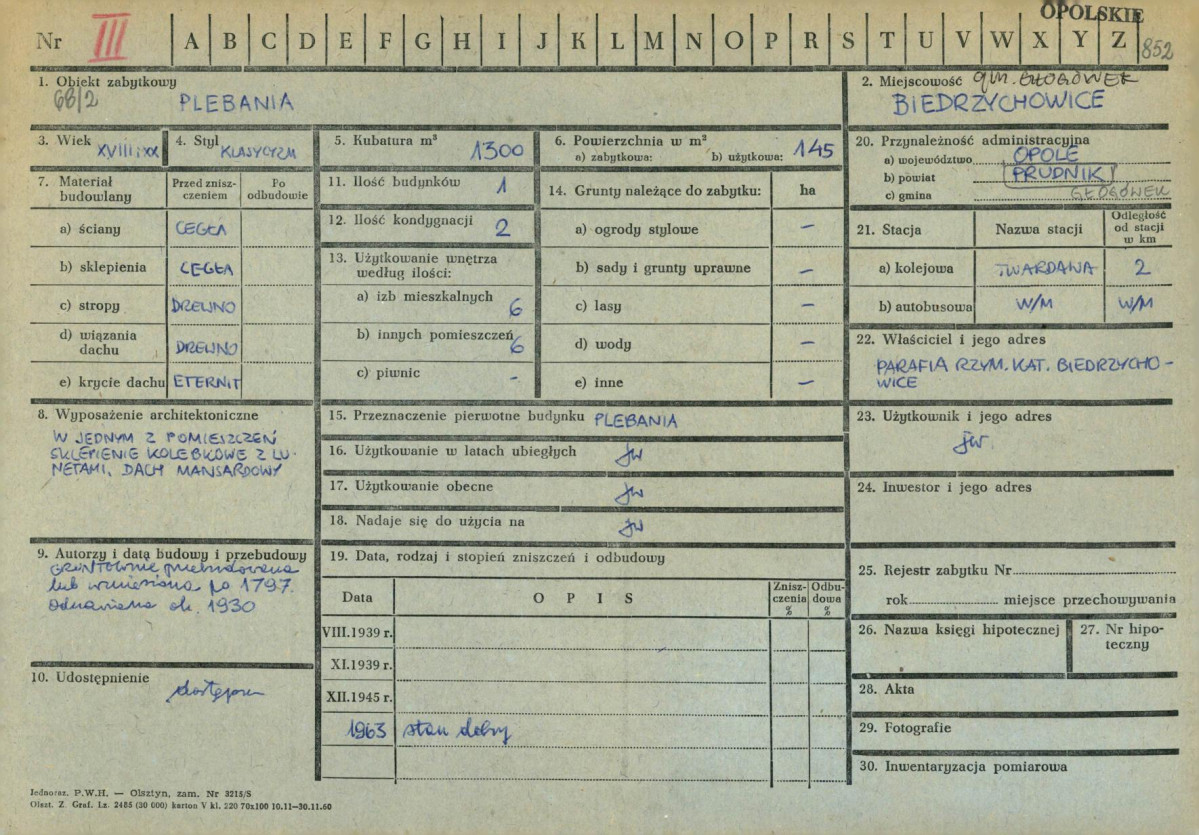 OPOLSKIE
Nr III A B C D E F G H I J K L M N O P R S T U V W X Y Z 852
1. Obiekt zabytkowy
68/2 PLEBANIA
2. Miejscowość gm. GŁOGÓWEK
BIEDRZYCHOWICE
3. Wiek XVIII i XX
4. Styl KLASYCYZM
5. Kubatura m³ 1300
6. Powierzchnia w m²
a) zabytkowa: b) użytkowa: 145
7. Materiał budowlany
Przed zniszczeniem
Po odbudowie
a) ściany CEGŁA
b) sklepienia CEGŁA
c) stropy DREWNO
d) wiązania dachu DREWNO
e) krycie dachu ETERNIT
8. Wyposażenie architektoniczne
W JEDNYM Z POMIESZCZEŃ
SKLEPIENIE KOLEBKOWE Z LU-
NETAMI, DACH MANSARDOWY
9. Autorzy i data budowy i przebudowy
gruntownie przebudowana
lub wzniesiona po 1797.
odnawiana ok. 1930
10. Udostępnienie
dostępna
11. Ilość budynków 1
12. Ilość kondygnacji 2
13. Użytkowanie wnętrza
według ilości:
a) izb mieszkalnych 6
b) innych pomieszczeń 6
c) piwnic -
14. Grunty należące do zabytku: ha
a) ogrody stylowe –
b) sady i grunty uprawne –
c) lasy –
d) wody –
e) inne –
15. Przeznaczenie pierwotne budynku PLEBANIA
16. Użytkowanie w latach ubiegłych jw
17. Użytkowanie obecne jw
18. Nadaje się do użycia na jw
19. Data, rodzaj i stopień zniszczeń i odbudowy
Data OPIS Zniszczenia % Odbudowa %
VIII.1939 r.
XI.1939 r.
XII.1945 r.
1963 stan dobry
20. Przynależność administracyjna
a) województwo OPOLE
b) powiat PRUDNIK
c) gmina GŁOGÓWEK
21. Stacja Nazwa stacji Odległość od stacji w km
a) kolejowa TWARDAWA 2
b) autobusowa W/M W/M
22. Właściciel i jego adres
PARAFIA RZYM. KAT. BIEDRZYCHO-
WICE
23. Użytkownik i jego adres
jw.
24. Inwestor i jego adres
25. Rejestr zabytku Nr
rok miejsce przechowywania
26. Nazwa księgi hipotecznej
27. Nr hipoteczny
28. Akta
29. Fotografie
30. Inwentaryzacja pomiarowa
Jednoraz. P.W.H. — Olsztyn, zam. Nr 3215/S
Olszt. Z. Graf. Lz. 2485 (30 000) karton V kl. 220 70x100 10.11—30.11.60